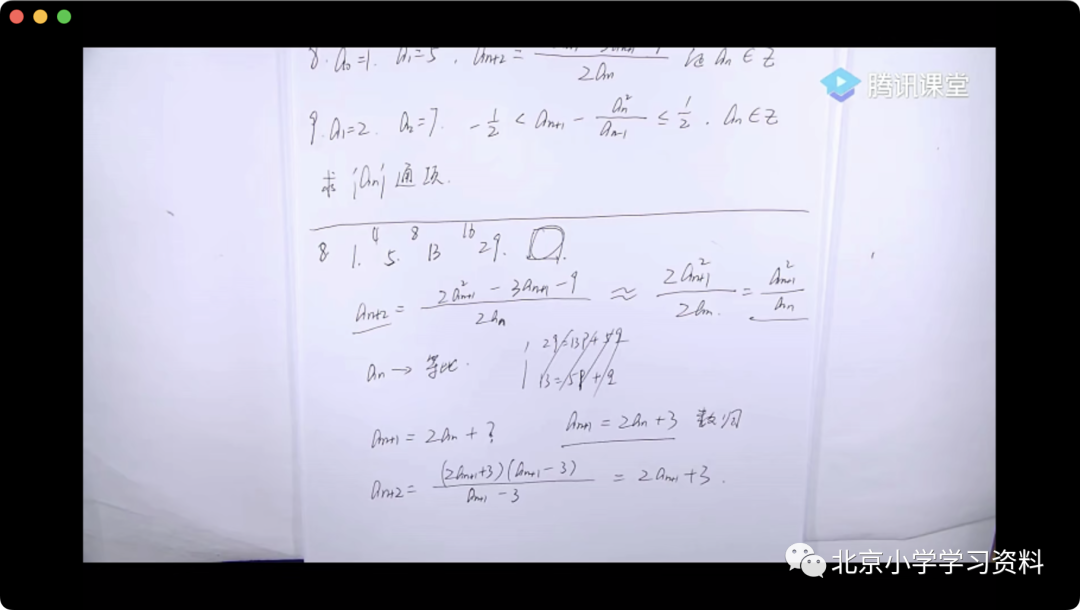 8. a₀=1. a₁=5 . aₙ₊₂ = ──── 2aₙ 证 aₙ ∈ Z
腾讯课堂
9. a₁=2. a₂=7. -1/2 < aₙ₊₁ - aₙ²/aₙ₋₁ ≤ 1/2 . aₙ ∈ Z
求 {aₙ} 通项.
8 1. 4 5. 8 13 16 29.
aₙ₊₂ = (2aₙ₊₁² - 3aₙ₊₁ - 9)/2aₙ ≈ 2aₙ₊₁²/2aₙ. = aₙ₊₁²/aₙ
aₙ → 等比. 29=13p+5q
13=5p+q
aₙ₊₁ = 2aₙ + ? aₙ₊₁ = 2aₙ + 3 数归
aₙ₊₂ = (2aₙ₊₁+3)(aₙ₊₁-3)/aₙ₊₁ - 3 = 2aₙ₊₁+3 .
北京小学学习资料